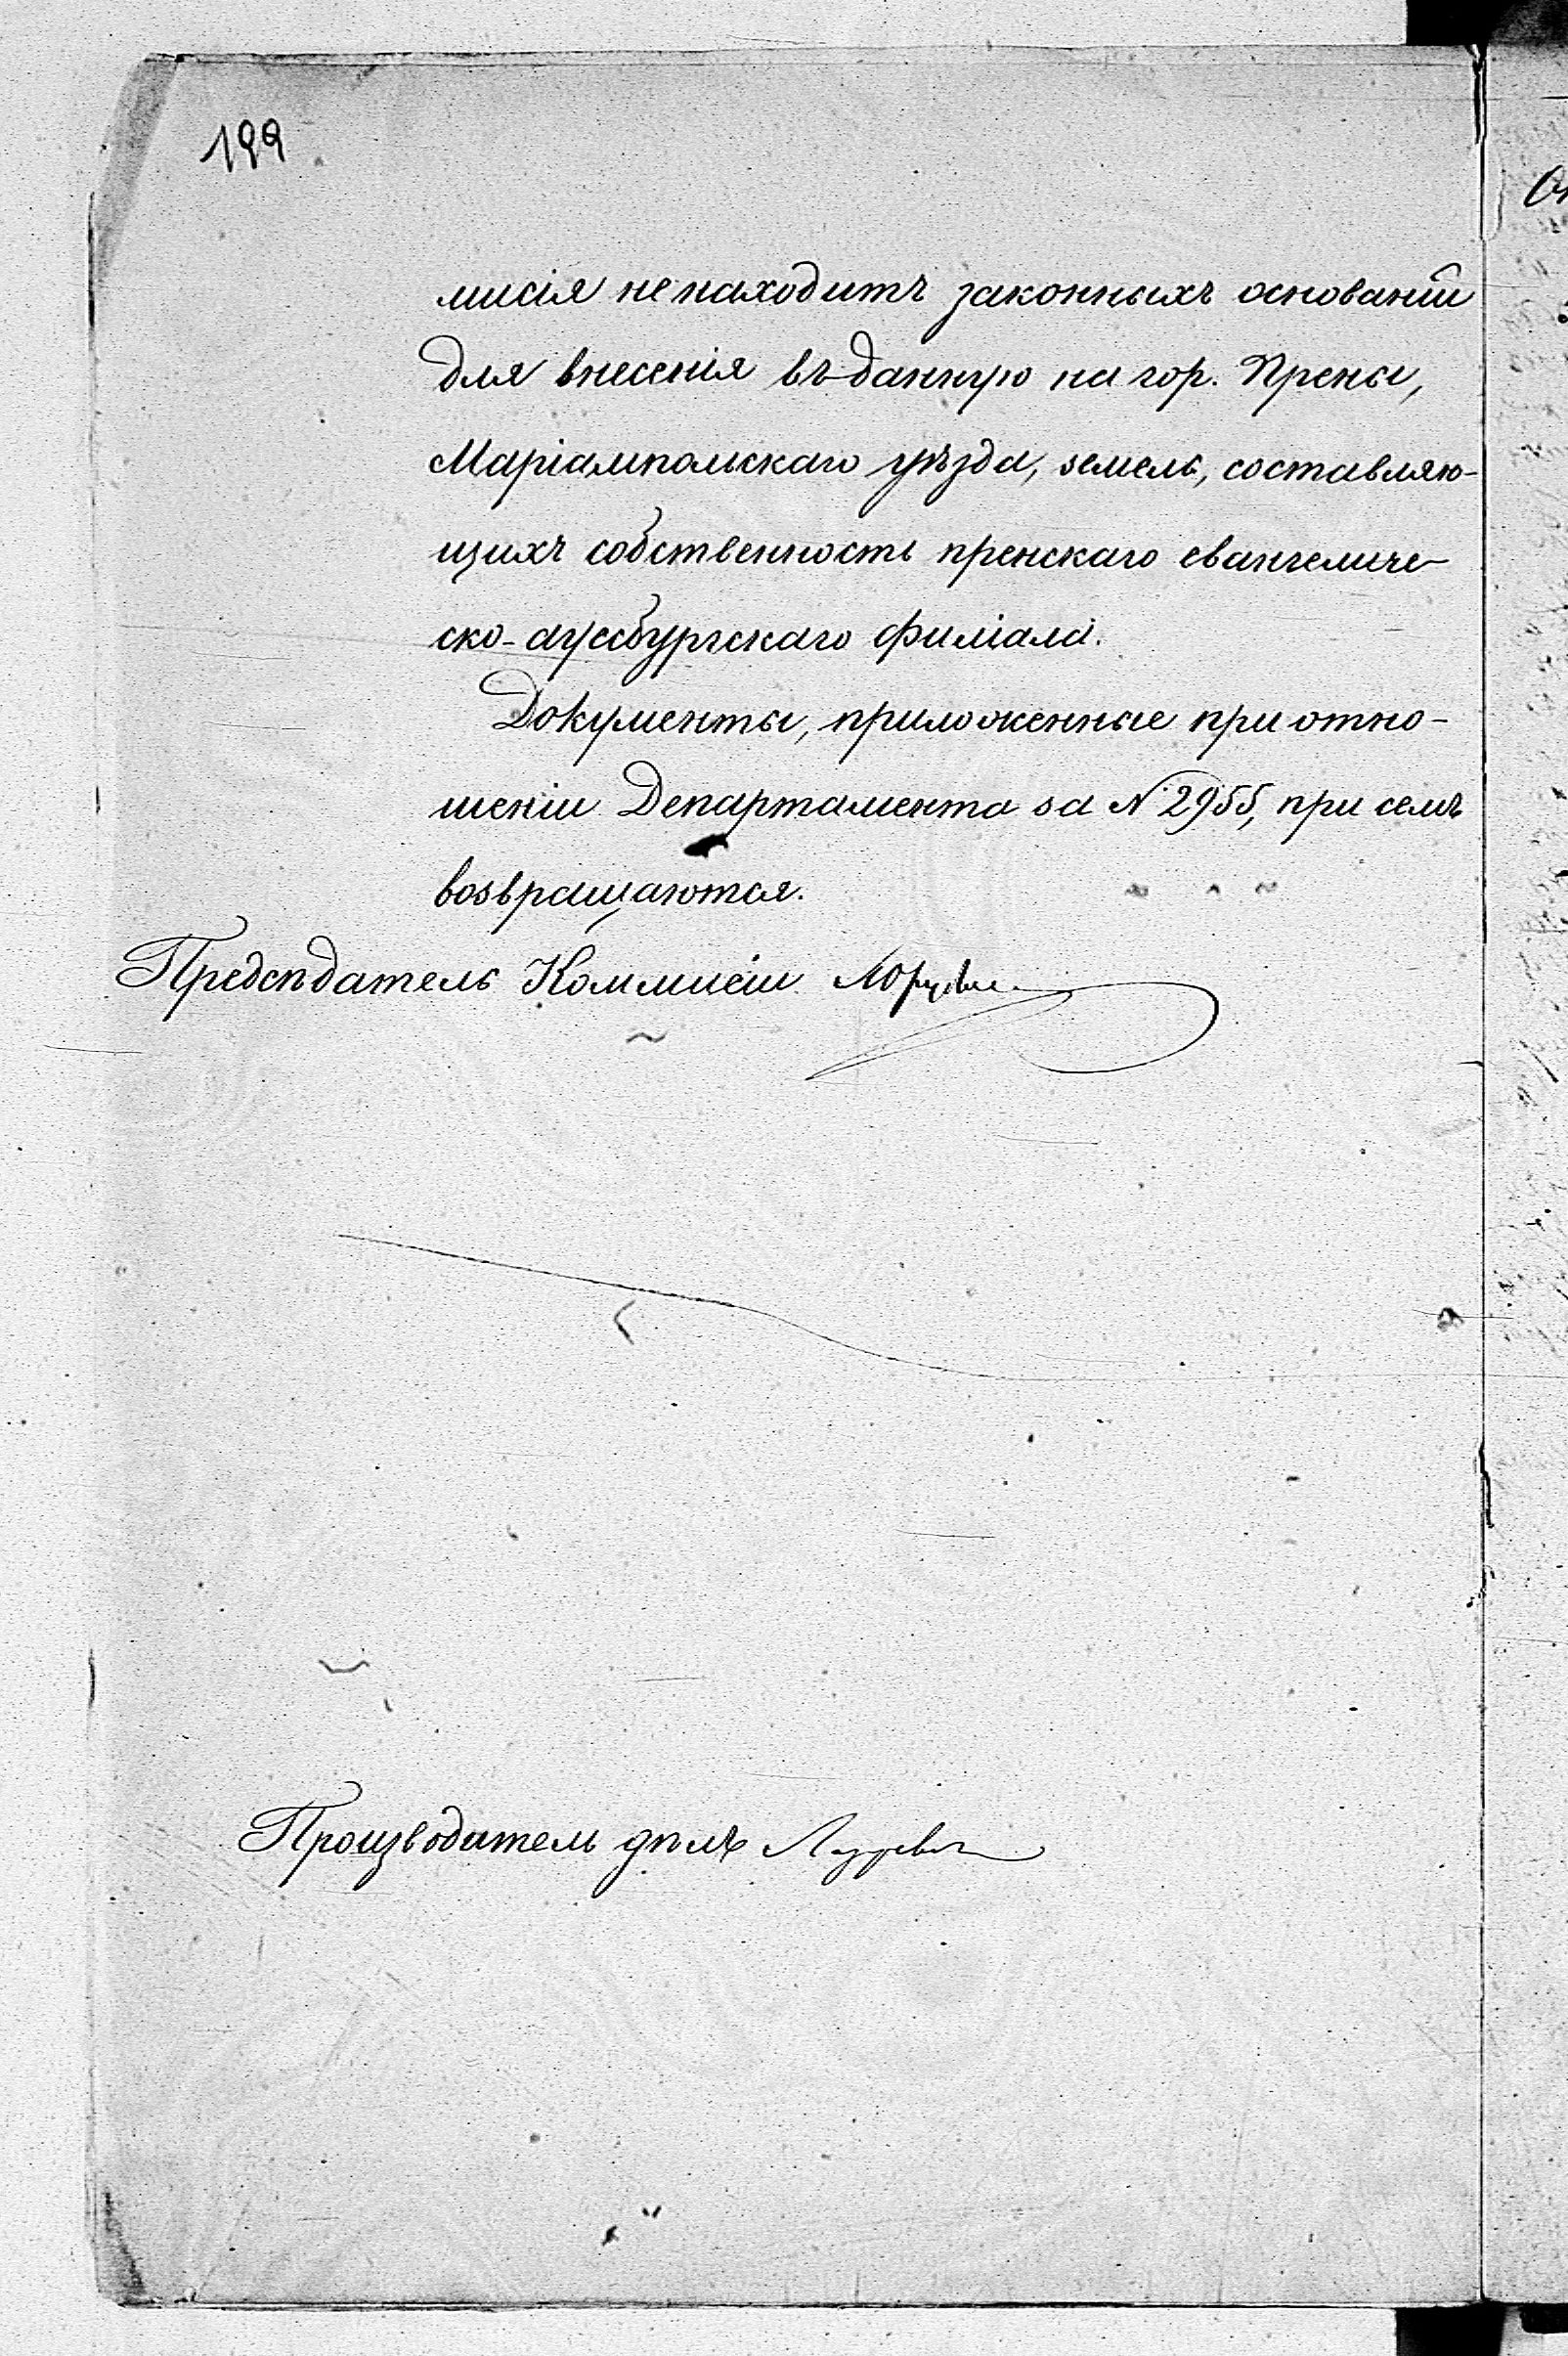 199
мисія не находитъ законныхъ основаній
для внесенія въ данную на гор. Прены,
Маріампольскаго уѣзда, земель, составляю-
щихъ собственность пренскаго евангеличе-
ско-аугсбургскаго филіала.
Документы, приложенные при отно-
шеніи Департамента за № 2955, при семъ
возвращаются.
Предсѣдатель Коммисіи
Производитель дѣлъ